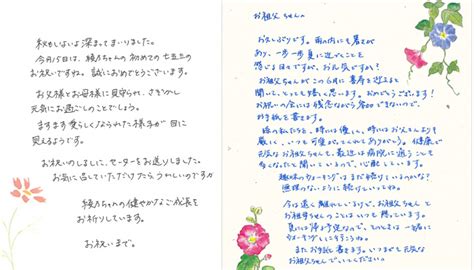 秋もしだいに深まってまいりました。
今月15日は、綾乃ちゃんの初めての七五三の
お祝いですね。誠におめでとうございます。
お父様とお母様に見守られ、さぞかし
元気にお過ごしのことでしょう。
ますます愛らしくなられた様子が目に
見えるようです。
お祝いのしるしに、セーターをお送りしました。
お気に召していただけたらうれしいのですが
綾乃ちゃんの健やかなご成長を
お祈りしています。
お祝いまで。
お祖父ちゃんへ
お久しぶりです。雨の内にも暑さが
あり、一歩一歩夏に近づくことを
感じる日々ですが、お元気ですか?
お祖父ちゃんがこの6月に喜寿を迎えると
聞いて、とっても嬉しく思います。おめでとうございます!
お祝いの会には残念ながら参加できないので、
お手紙を書きます。
孫の私たちと、時には優しく、時にはお父さんよりも
厳しく、いつも可愛がってくれてありがとう。健康で
元気なお祖父ちゃんも、最近は病院に通うことも
多くなったと聞いているので、心配しています。
趣味のウォーキングはまだ続けているのかな?
無理のないように続けていってね。
今は遠く離れているけど、お祖父ちゃんと
お祖母ちゃんのことはいつも想っています。
夏には帰る予定なので、そのときは一緒に
ウォーキングしに行こうね。
またお手紙書きます。いつまでも元気な
お祖父ちゃんでいてください。